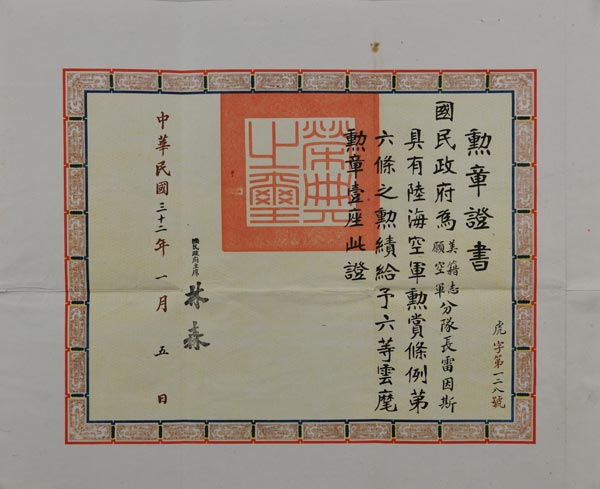 勲章證書
國民政府為美籍志願空軍分隊長雷因斯
具有陸海空軍勲賞條例第
六條之勲績給予六等雲麾
勲章壹座此證
虎字第一二八號
榮典之璽
國民政府主席
林森
中華民國三十二年一月五日